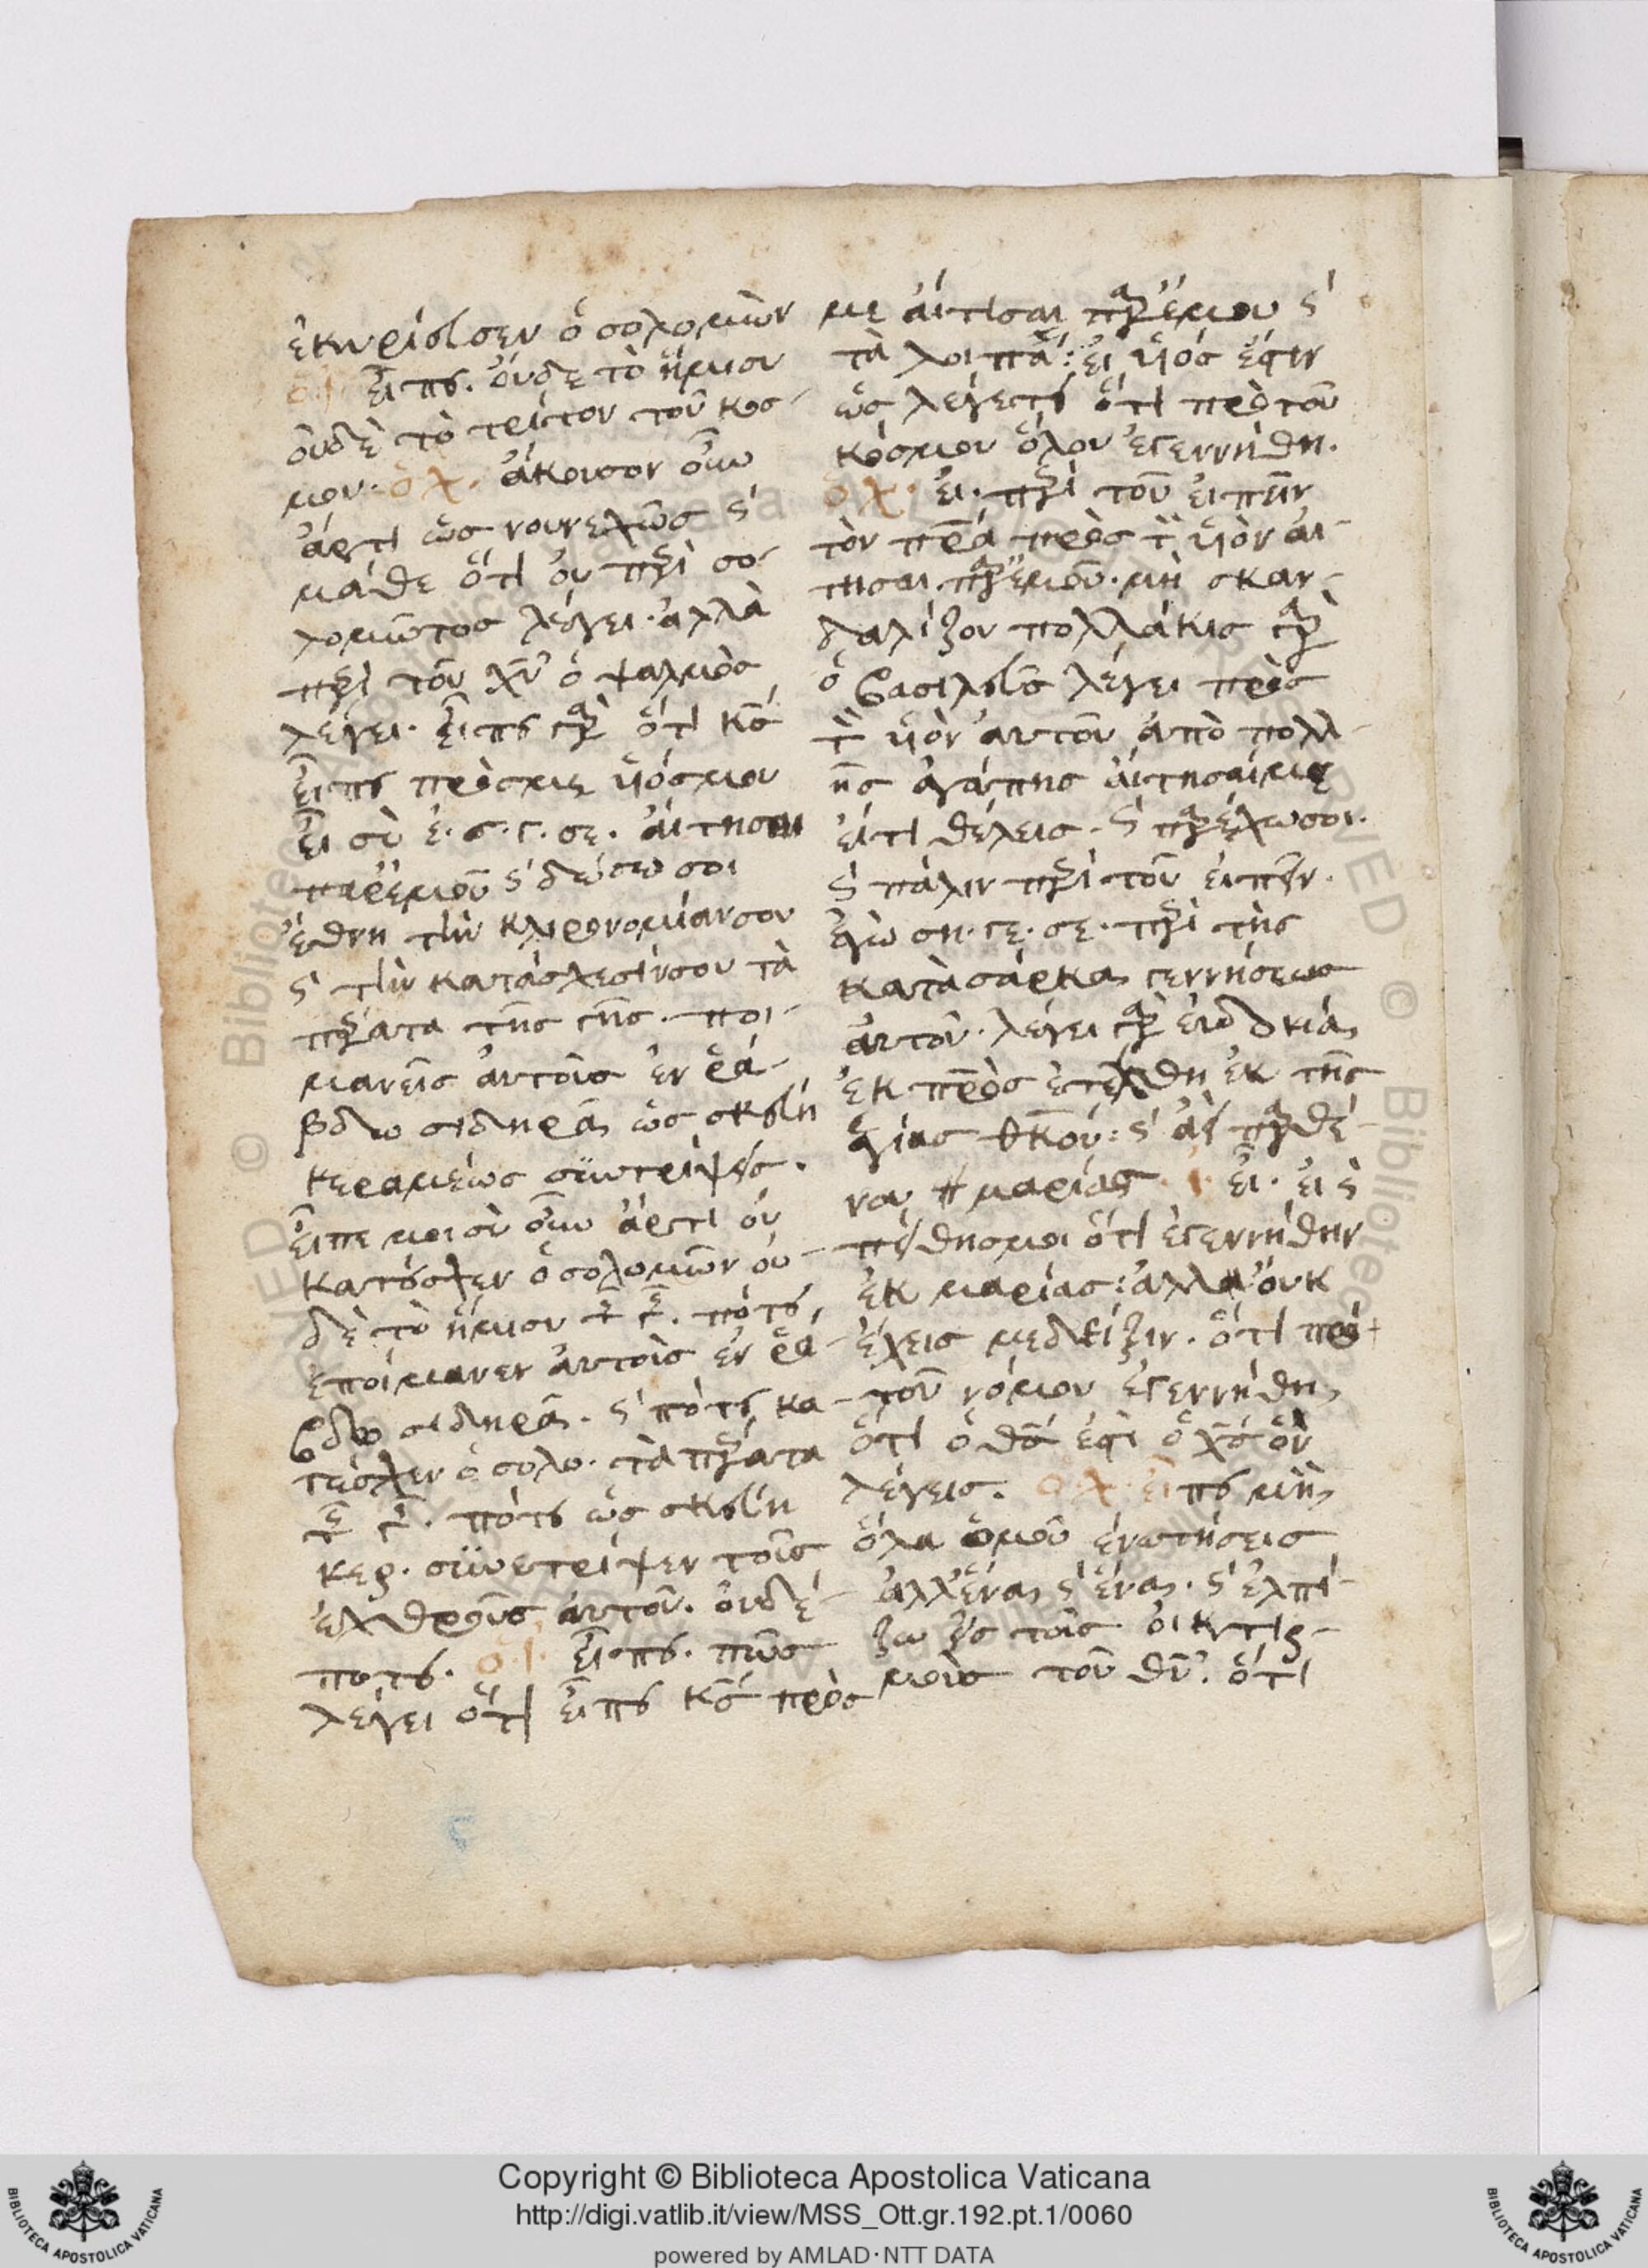 ἐκυρίευσεν ὁ σολομὼν
ὁ ἰ. εἶπε. οὐδε τὸ ἥμισυ
οὐδὲ τὸ τρίτον τοῦ κόσ-
μου. ὁ χ. ἄκουσον οὖν
ἄρτι ὡς νουνεχῶς ϛ
μάθε ὅτι οὐ περὶ σο-
λομῶντος λέγει. ἀλλὰ
περὶ τοῦ χυ ὁ ψαλμὸς
λέγει. εἶπε γὰρ ὅτι κς
εἶπε πρόσμε ὑιόσμου
εἶ σὺ ἐ. σ. γ. σε. αἴτησαι
παρἐμοῦ ϛ δώσω σοι
ἔθνη τὴν κλιρονομίανσου
ϛ τὴν κατάσχεσίνσου τὰ
πέρατα τῆς γῆς. ποι-
μανεῖς αὐτοὺς ἐν ῥά-
βδω σιδηρᾶ ὡς σκεύη
κεραμέως συντρίψεις.
εἶπε μοι σὺ οὖν ἄρτι οὐ
κατέσχεν ὁ σολομῶν οὐ-
δὲ τὸ ἥμισυ τ γ. πότε
ἐποίμανεν αὐτοὺς ἐν ῥά-
βδω σιδηρᾶ. ϛ πότε κα-
τέσχεν ὁ σολο. τὰ πέρατα
τ γ. πότε ὡς σκεύη
κερ. συνετρίψεν τοὺς
ἐχθροὺς αὐτοῦ. οὐδέ-
ποτε. ὁ ἰ. εἶπε. πῶς
λέγει ὅτι εἶπε κς πρὸς
με αἴτισαι παρἐμου ϛ
τὰ λοιπά: εἰ ὑιός ἐστιν
ὡς λέγετε ὅτι πρὸ τοῦ
κόσμου ὅλου ἐγεννήθη.
ὁ χ. εἰ. περὶ τοῦ εἰπεῖν
τὸν πρα πρὸς τ ὑιὸν αἴ-
τησαι παρἐμοῦ. μὴ σκαν-
δαλίζου πολλάκις γὰρ
ὁ βασιλεῦς λέγει πρὸς
τ ὑιὸν αὐτοῦ ἀπὸ πολλ-
ῆς ἀγάπης αἴτησαίμε
εἴτι θέλεις. ϛ παρέχωσοι.
ϛ πάλιν περὶ τοῦ εἰπεῖν.
ἐγὼ ση. γε. σε. περὶ τῆς
κατὰ σάρκα γεννήσεως
αὐτοῦ. λέγει γὰρ εὐδοκία
ἐκ πρὸς ἐτέχθη ἐκ τῆς
ἁγίας θκου: ϛ ἀεὶ παρθέ-
νου μαρίας. ὁ ἰ. εἶ. εἰς
πείθησμοι ὅτι ἐγεννήθην
ἐκ μαρίας: ἀλλα οὐκ
ἔχεις μεδείξειν. ὅτι πρὸ
τοῦ νόμου ἐγεννήθη
ὅτι ὁ θς ἐστὶ ὁ χς ὃν
λέγεις. ὁ χ. εἶπε μὴ
ὅλα ὁμοῦ ἐρωτήσεις
ἀλλἕνα ϛ ἕνα. ϛ ἐλπί-
ζω εἰς τοὺς οἰκτιρ-
μοὺς τοῦ θυ. ὅτι
Copyright © Biblioteca Apostolica Vaticana
http://digi.vatlib.it/view/MSS_Ott.gr.192.pt.1/0060
powered by AMLAD·NTT DATA
BIBLIOTECA APOSTOLICA VATICANA
BIBLIOTECA APOSTOLICA VATICANA